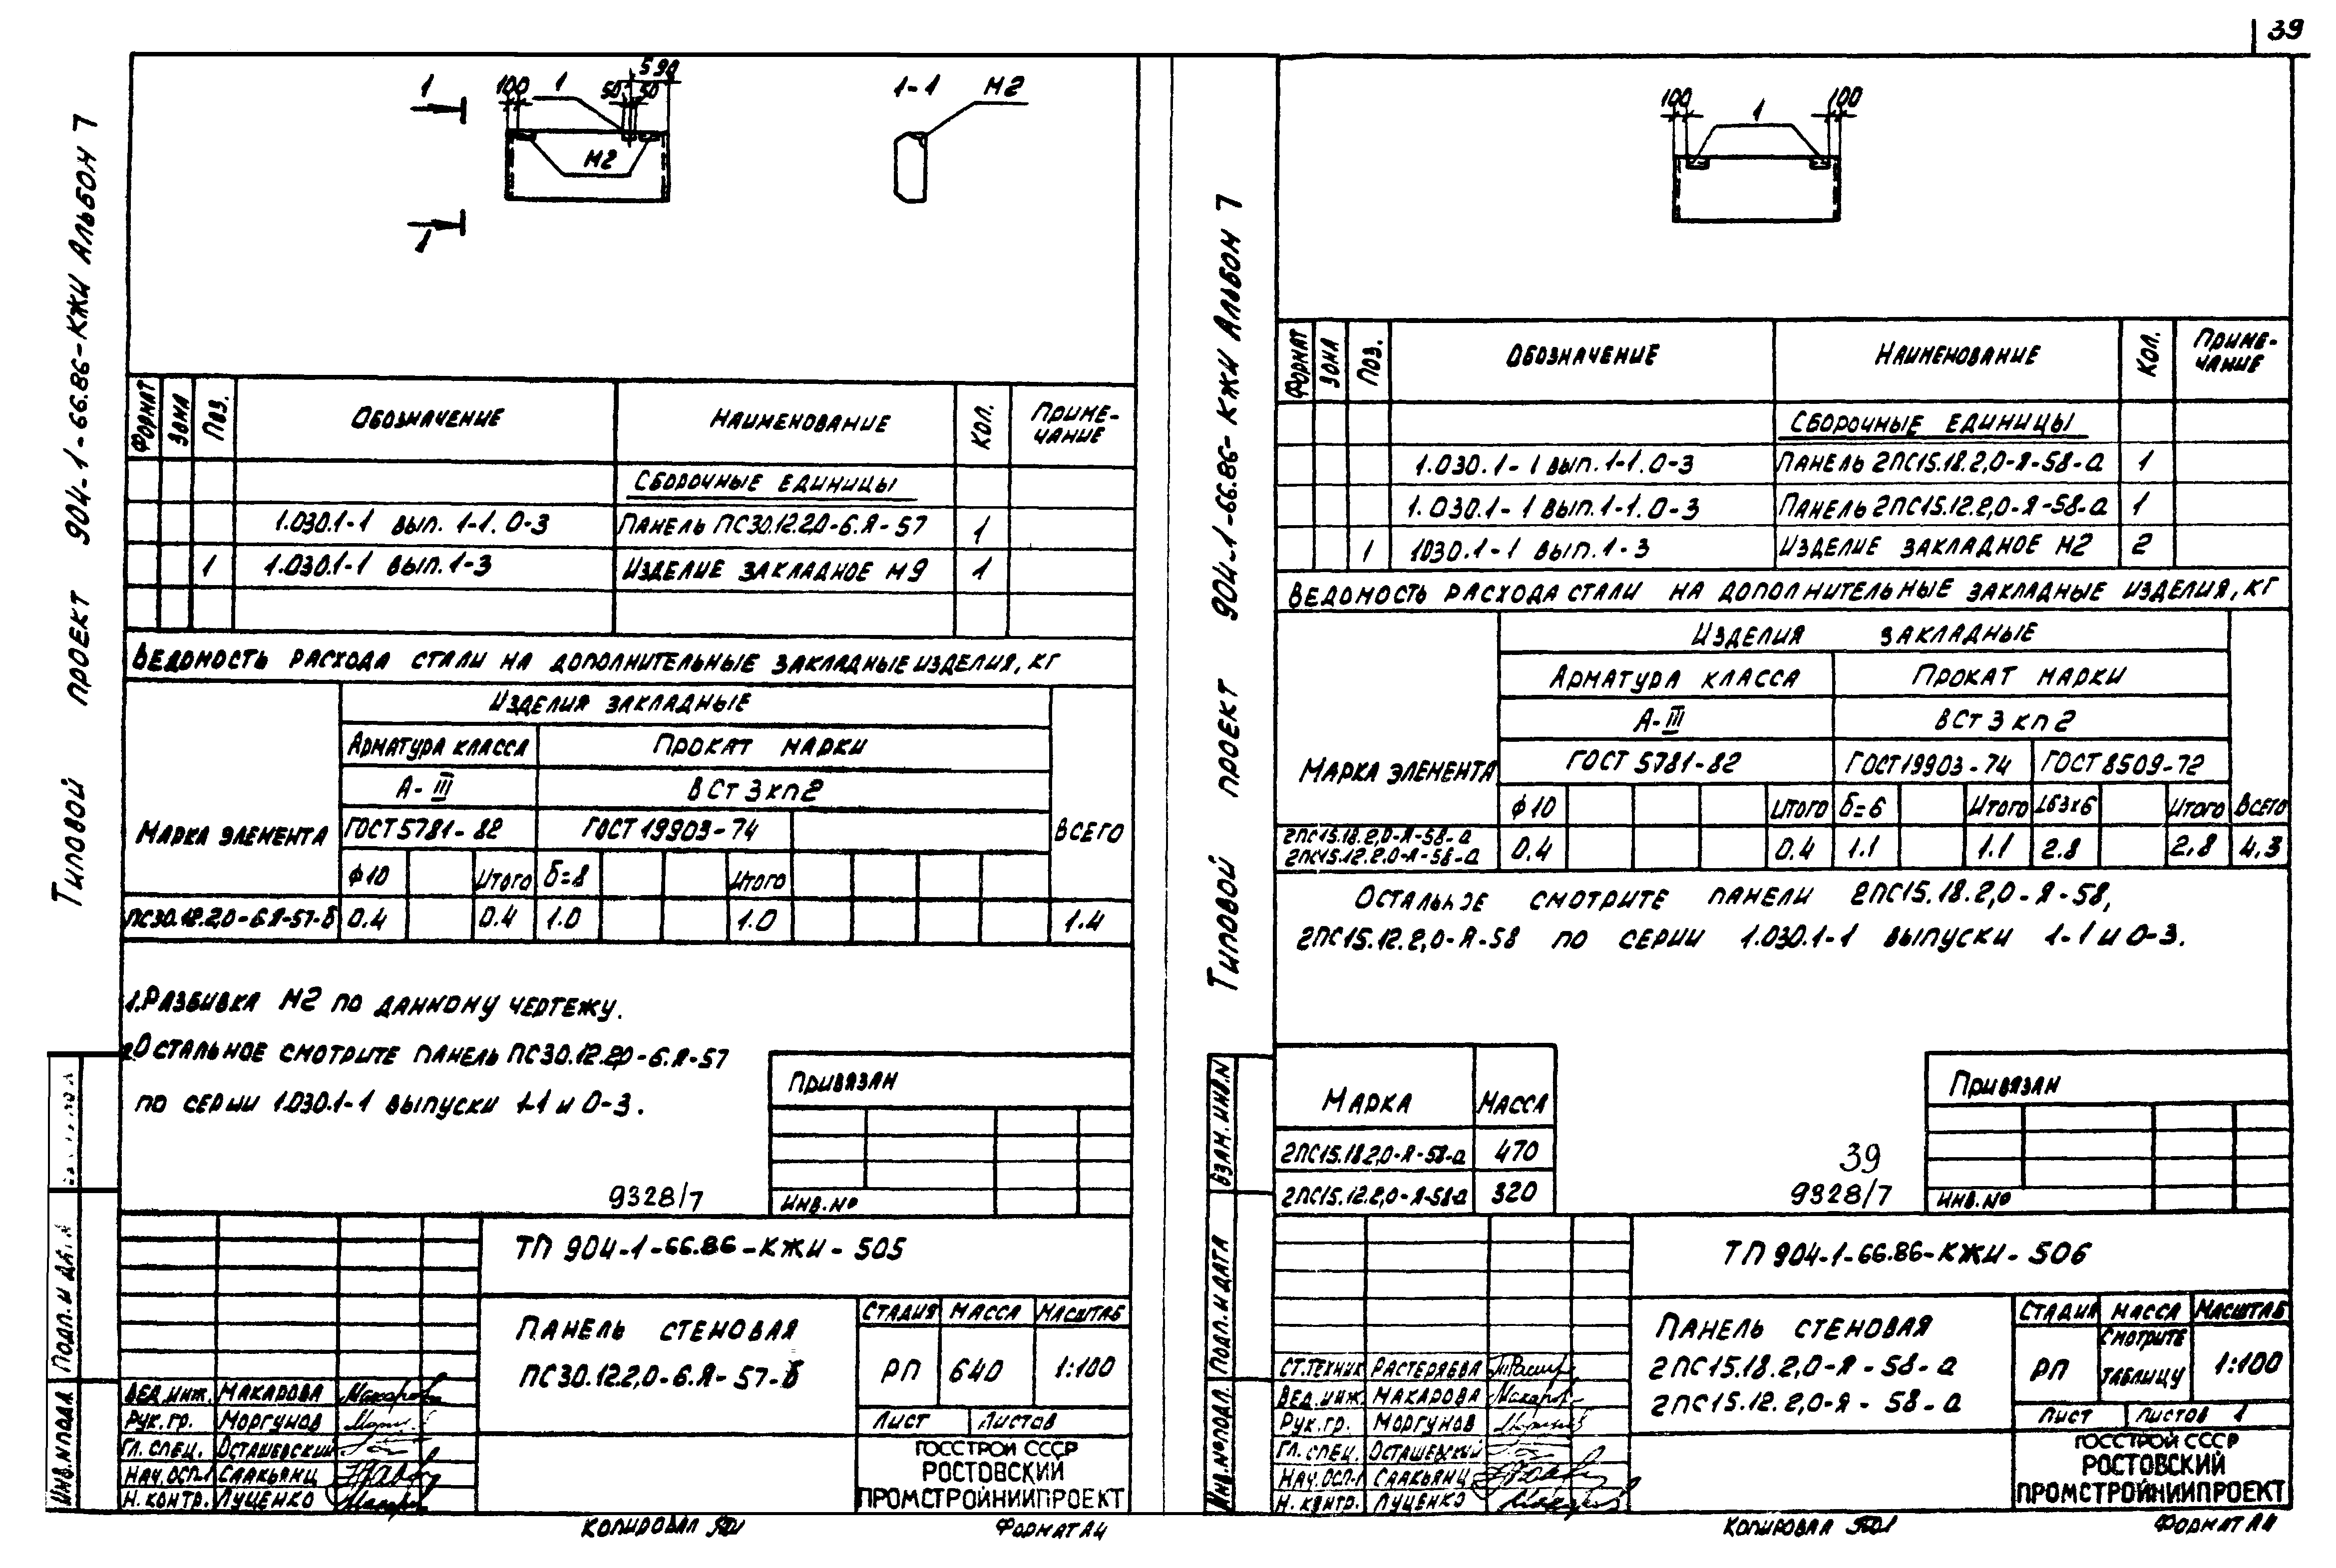 39
Типовой проект 904-1-66.86-КЖИ Альбом 7
1
1
100
1
50
50
590
М2
1-1
М2
Формат Зона Поз. Обозначение Наименование Кол. Приме-
чание
Сборочные единицы
1.030.1-1 вып. 1-1. 0-3 Панель ПС30.12.2,0-6.Я-57 1
1 1.030.1-1 вып. 1-3 Изделие закладное М9 1
Ведомость расхода стали на дополнительные закладные изделия, кг
Марка элемента Изделия закладные Всего
Арматура класса Прокат марки
А-III ВСт3кп2
ГОСТ 5781-82 ГОСТ 19903-74
ф10 Итого δ=8 Итого
ПС30.12.2,0-6.Я-57-б 0.4 0.4 1.0 1.0 1.4
1. Разбивка М2 по данному чертежу.
2. Остальное смотрите панель ПС30.12.2,0-6.Я-57
по серии 1.030.1-1 выпуски 1-1 и 0-3.
Привязан
Инв.№
9328/7
ТП 904-1-66.86-КЖИ-505
Панель стеновая
ПС30.12.2,0-6.Я-57-б
Стадия Масса Масштаб
РП 640 1:100
Лист Листов
Госстрой СССР
Ростовский
Промстройниипроект
Вед.инж. Макарова
Рук.гр. Моргунов
Гл.спец. Осташевский
Нач.ОСП-1 Саакьянц
Н.контр. Луценко
Подп. и
Инв.№подл
Копировал
Формат А4
Типовой проект 904-1-66.86-КЖИ Альбом 7
100
1
100
Формат Зона Поз. Обозначение Наименование Кол. Приме-
чание
Сборочные единицы
1.030.1-1 вып.1-1. 0-3 Панель 2ПС15.18.2,0-Я-58-а 1
1.030.1-1 вып.1-1. 0-3 Панель 2ПС15.12.2,0-Я-58-а 1
1 1030.1-1 вып.1-3 Изделие закладное М2 2
Ведомость расхода стали на дополнительные закладные изделия, кг
Марка элемента Изделия закладные Всего
Арматура класса Прокат марки
А-III ВСт3кп2
ГОСТ 5781-82 ГОСТ 19903-74 ГОСТ 8509-72
ф10 Итого δ=6 Итого L63х6 Итого
2ПС15.18.2,0-Я-58-а
2ПС15.12.2,0-Я-58-а 0.4 0.4 1.1 1.1 2.8 2.8 4,3
Остальное смотрите панели 2ПС15.18.2,0-Я-58,
2ПС15.12.2,0-Я-58 по серии 1.030.1-1 выпуски 1-1 и 0-3.
Марка Масса
2ПС15.18.2,0-Я-58-а 470
2ПС15.12.2,0-Я-58-а 320
39
9328/7
Привязан
Инв.№
ТП 904-1-66.86-КЖИ-506
Панель стеновая
2ПС15.18.2,0-Я-58-а
2ПС15.12.2,0-Я-58-а
Стадия Масса Масштаб
РП Смотрите
таблицу 1:100
Лист Листов 1
Госстрой СССР
Ростовский
Промстройниипроект
Ст.техник Растеряева
Вед.инж. Макарова
Рук.гр. Моргунов
Гл.спец. Осташевский
Нач.ОСП-1 Саакьянц
Н.контр. Луценко
Взам.инв.№
Подп. и дата
Инв.№подл.
Копировал
Формат А4